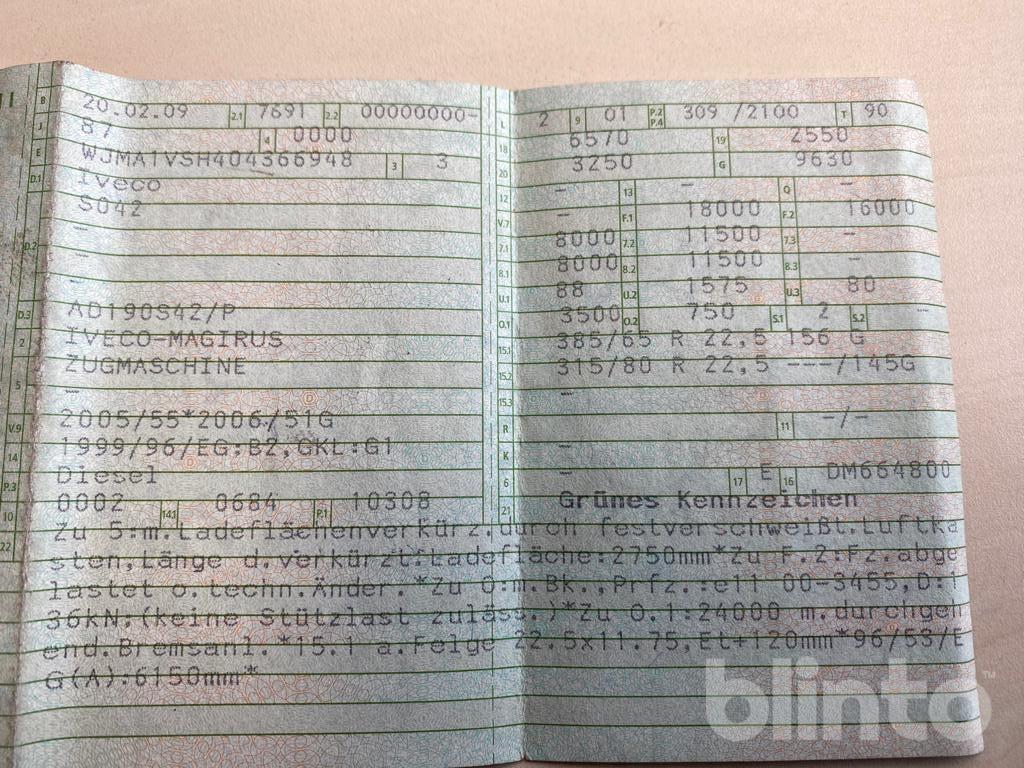 B 20.02.09 2.1 7691 2.2 00000000-
J 87 4 0000
E WJMA1VSH404366948 3 3
D.1 Iveco
S042
D.2 –
–
D.3 AD190S42/P
2 IVECO-MAGIRUS
5 ZUGMASCHINE
–
V.9 2005/55*2006/51G
14 1999/96/EG;B2,GKL:G1
P.3 Diesel
10 0002 14.1 0684 P.1 10308
L 2 9 01 P.2 P.4 309 /2100 T 90
18 6570 19 2550
20 3250 G 9630
12 – 13 – Q –
V.7 – F.1 18000 F.2 16000
7.1 8000 7.2 11500 7.3 –
8.1 8000 8.2 11500 8.3 –
U.1 88 U.2 1575 U.3 80
O.1 3500 O.2 750 S.1 2 S.2
15.1 385/65 R 22,5 156 G
15.2 315/80 R 22,5 ---/145G
15.3 –
R – 11 –/–
K –
6 – 17 E 16 DM664800
21 Grünes Kennzeichen
22 Zu 5:m.Ladeflächenverkürz.durch festverschweißt.Luftka
sten,Länge d.verkürzt.Ladefläche:2750mm*Zu F.2:Fz.abge
lastet o.techn.Änder.*Zu O:m.Bk.,Prfz.:e11 00-3455,D:1
36kN;(keine Stützlast zuläss.)*Zu O.1:24000 m.durchgeh
end.Bremsanl.*15.1 a.Felge 22.5x11.75,Et+120mm*96/53/E
G(A):6150mm*
blinto™